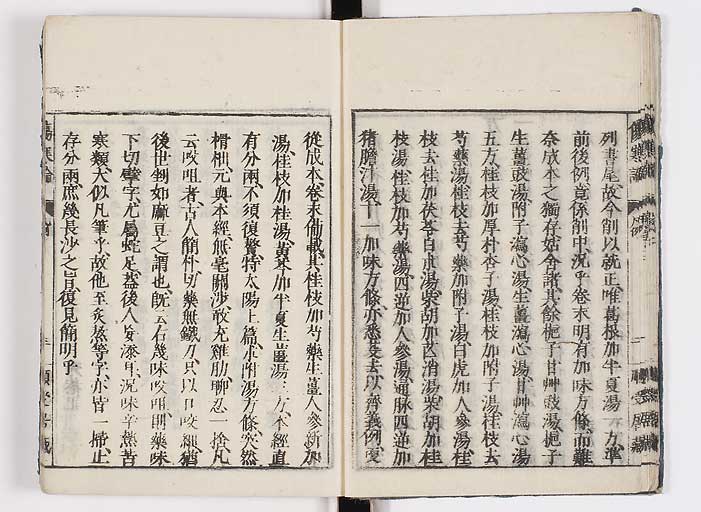 列書尾故今削以就正唯葛根加半夏湯一方準
前後例竟係削中況乎卷末明有加味方條而難
奈成本之獨存姑舍諸其餘梔子甘艸豉湯梔子
生薑豉湯附子瀉心湯生薑瀉心湯甘艸瀉心湯
五方桂枝加厚朴杏子湯桂枝加附子湯桂枝去
芍藥湯桂枝去芍藥加附子湯白虎加人參湯桂
枝去桂加茯苓白朮湯柴胡加芒消湯柴胡加桂
枝湯桂枝加芍藥湯四逆加人參湯通脈四逆加
猪膽汁湯十一加味方條亦悉芟去以齊義例矣
從成本卷末備載其桂枝加芍藥生薑人參新加
湯桂枝加桂湯黃芩加半夏生薑湯三方本經直
有分兩不須復贅特太陽上篇末附湯方條突然
榾柮元與本經無毫關涉敢充雞肋聊忍一捨凡
云㕮咀者古人簡朴切藥無鐵刀只以口㕮細猶
後世剉如麻豆之謂也既云右幾味㕮咀則藥味
下切擘字尤屬蛇足蓋後人旁添耳況味辛苦
寒類大似凡筆乎故他至炙熬等字亦皆一掃止
存分兩庶幾長沙之旨復見簡明乎
傷寒論